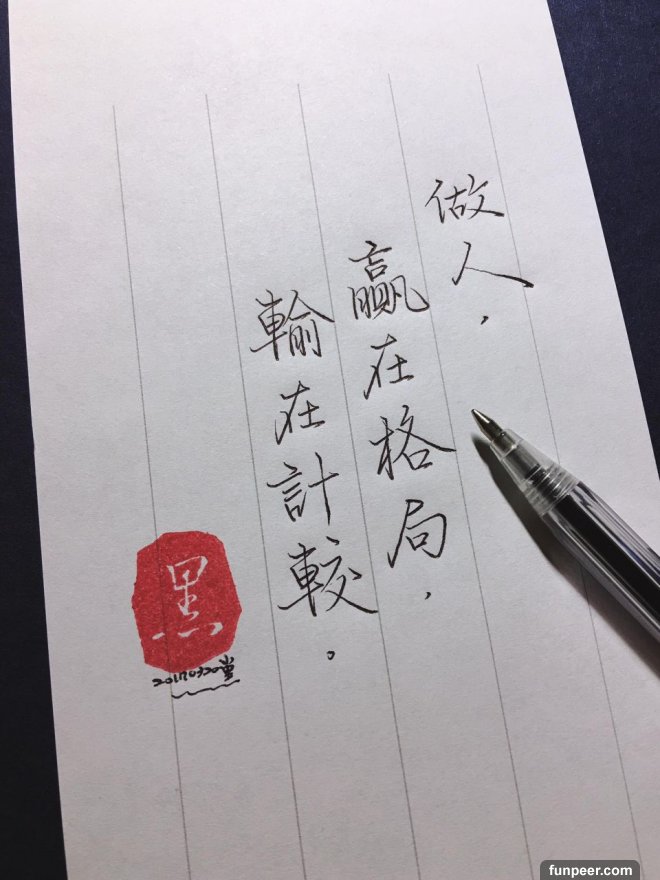 做人，
贏在格局，
輸在計較。
黑
20170320堂
funpeer.com